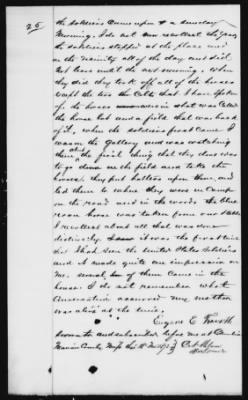 25
the soldiers came upon a Sunday
morning. I do not now recollect the year
the soldiers stopped at the place and
in the vicinity all of the day and did
not leave until the next morning. When
they did they took off all of the horses
except the two the colts that I have spoken
of. The horses were in what was called
the horse lot and a field that was back
of it, when the soldiers first came I
was on the gallery and was watching
them and the first thing that they done was
to go down in the field and to take the
horses. they put halters upon them, and
led them to where they were in camp
on the road and in the woods. The blue
roan horse was taken from our stable
I recollect about all that was done
distinctly. It was the first time
I had seen the United States soldiers
and it made quite an impression on
me. Several of them came in the
house. I do not remember what
conversation occurred my mother
was alive at the time.
Eugene C.
Sworn to and subscribed before me at
County Miss